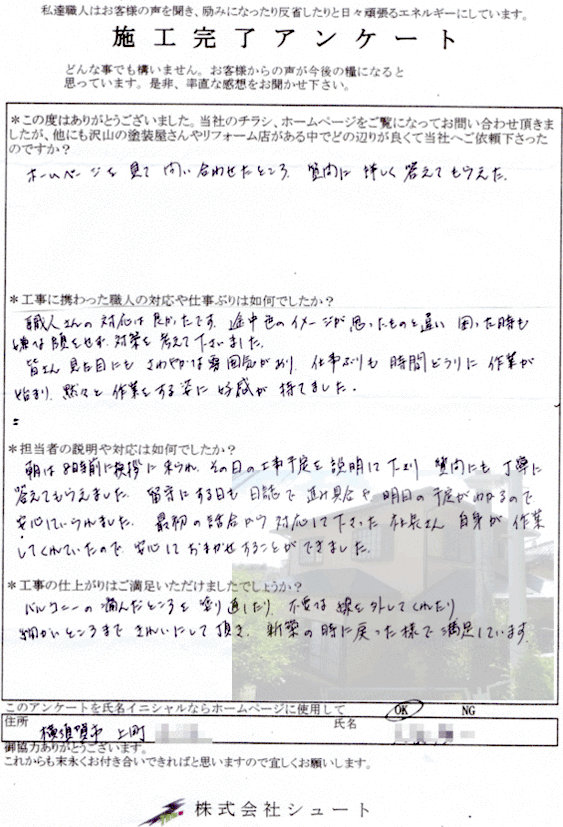 私達職人はお客様の声を聞き、励みになったり反省したりと日々頑張るエネルギーにしています。
施工完了アンケート
どんな事でも構いません。お客様からの声が今後の糧になると
思っています。是非、率直な感想をお聞かせ下さい。
＊この度はありがとうございました。当社のチラシ、ホームページをご覧になってお問い合わせ頂きま
したが、他にも沢山の塗装屋さんやリフォーム店がある中でどの辺りが良くて当社へご依頼下さった
のですか？
ホームページを見て問い合わせたところ、質問に詳しく答えてもらえた。
＊工事に携わった職人の対応や仕事ぶりは如何でしたか？
職人さんの対応は良かったです。途中色のイメージが思ったものと違い困った時も
嫌な顔をせず、対策を考えて下さいました。
皆さん見た目にもさわやかな雰囲気があり、仕事ぶりも時間どうりに作業が
始まり、黙々と作業をする姿に好感が持てました。
＊担当者の説明や対応は如何でしたか？
朝は8時前に挨拶に来られ、その日の工事予定を説明して下さり質問にも丁寧に
答えてもらえました。留守にする日も日誌で進み具合や明日の予定がわかるので
安心していられました。最初の話合から対応して下さった社長さん自身が作業
してくれていたので、安心しておまかせすることができました。
＊工事の仕上がりはご満足いただけましたでしょうか？
バルコニーの痛んだところを塗り直したり、不要な線を外してくれたり
細かいところまできれいにして頂き、新築の時に戻った様で満足しています。
このアンケートを氏名イニシャルならホームページに使用して OK NG
住所 横須賀市 上町 氏名
御協力ありがとうございます。
これからも末永くお付き合いできればと思いますので宜しくお願いします。
株式会社シュート